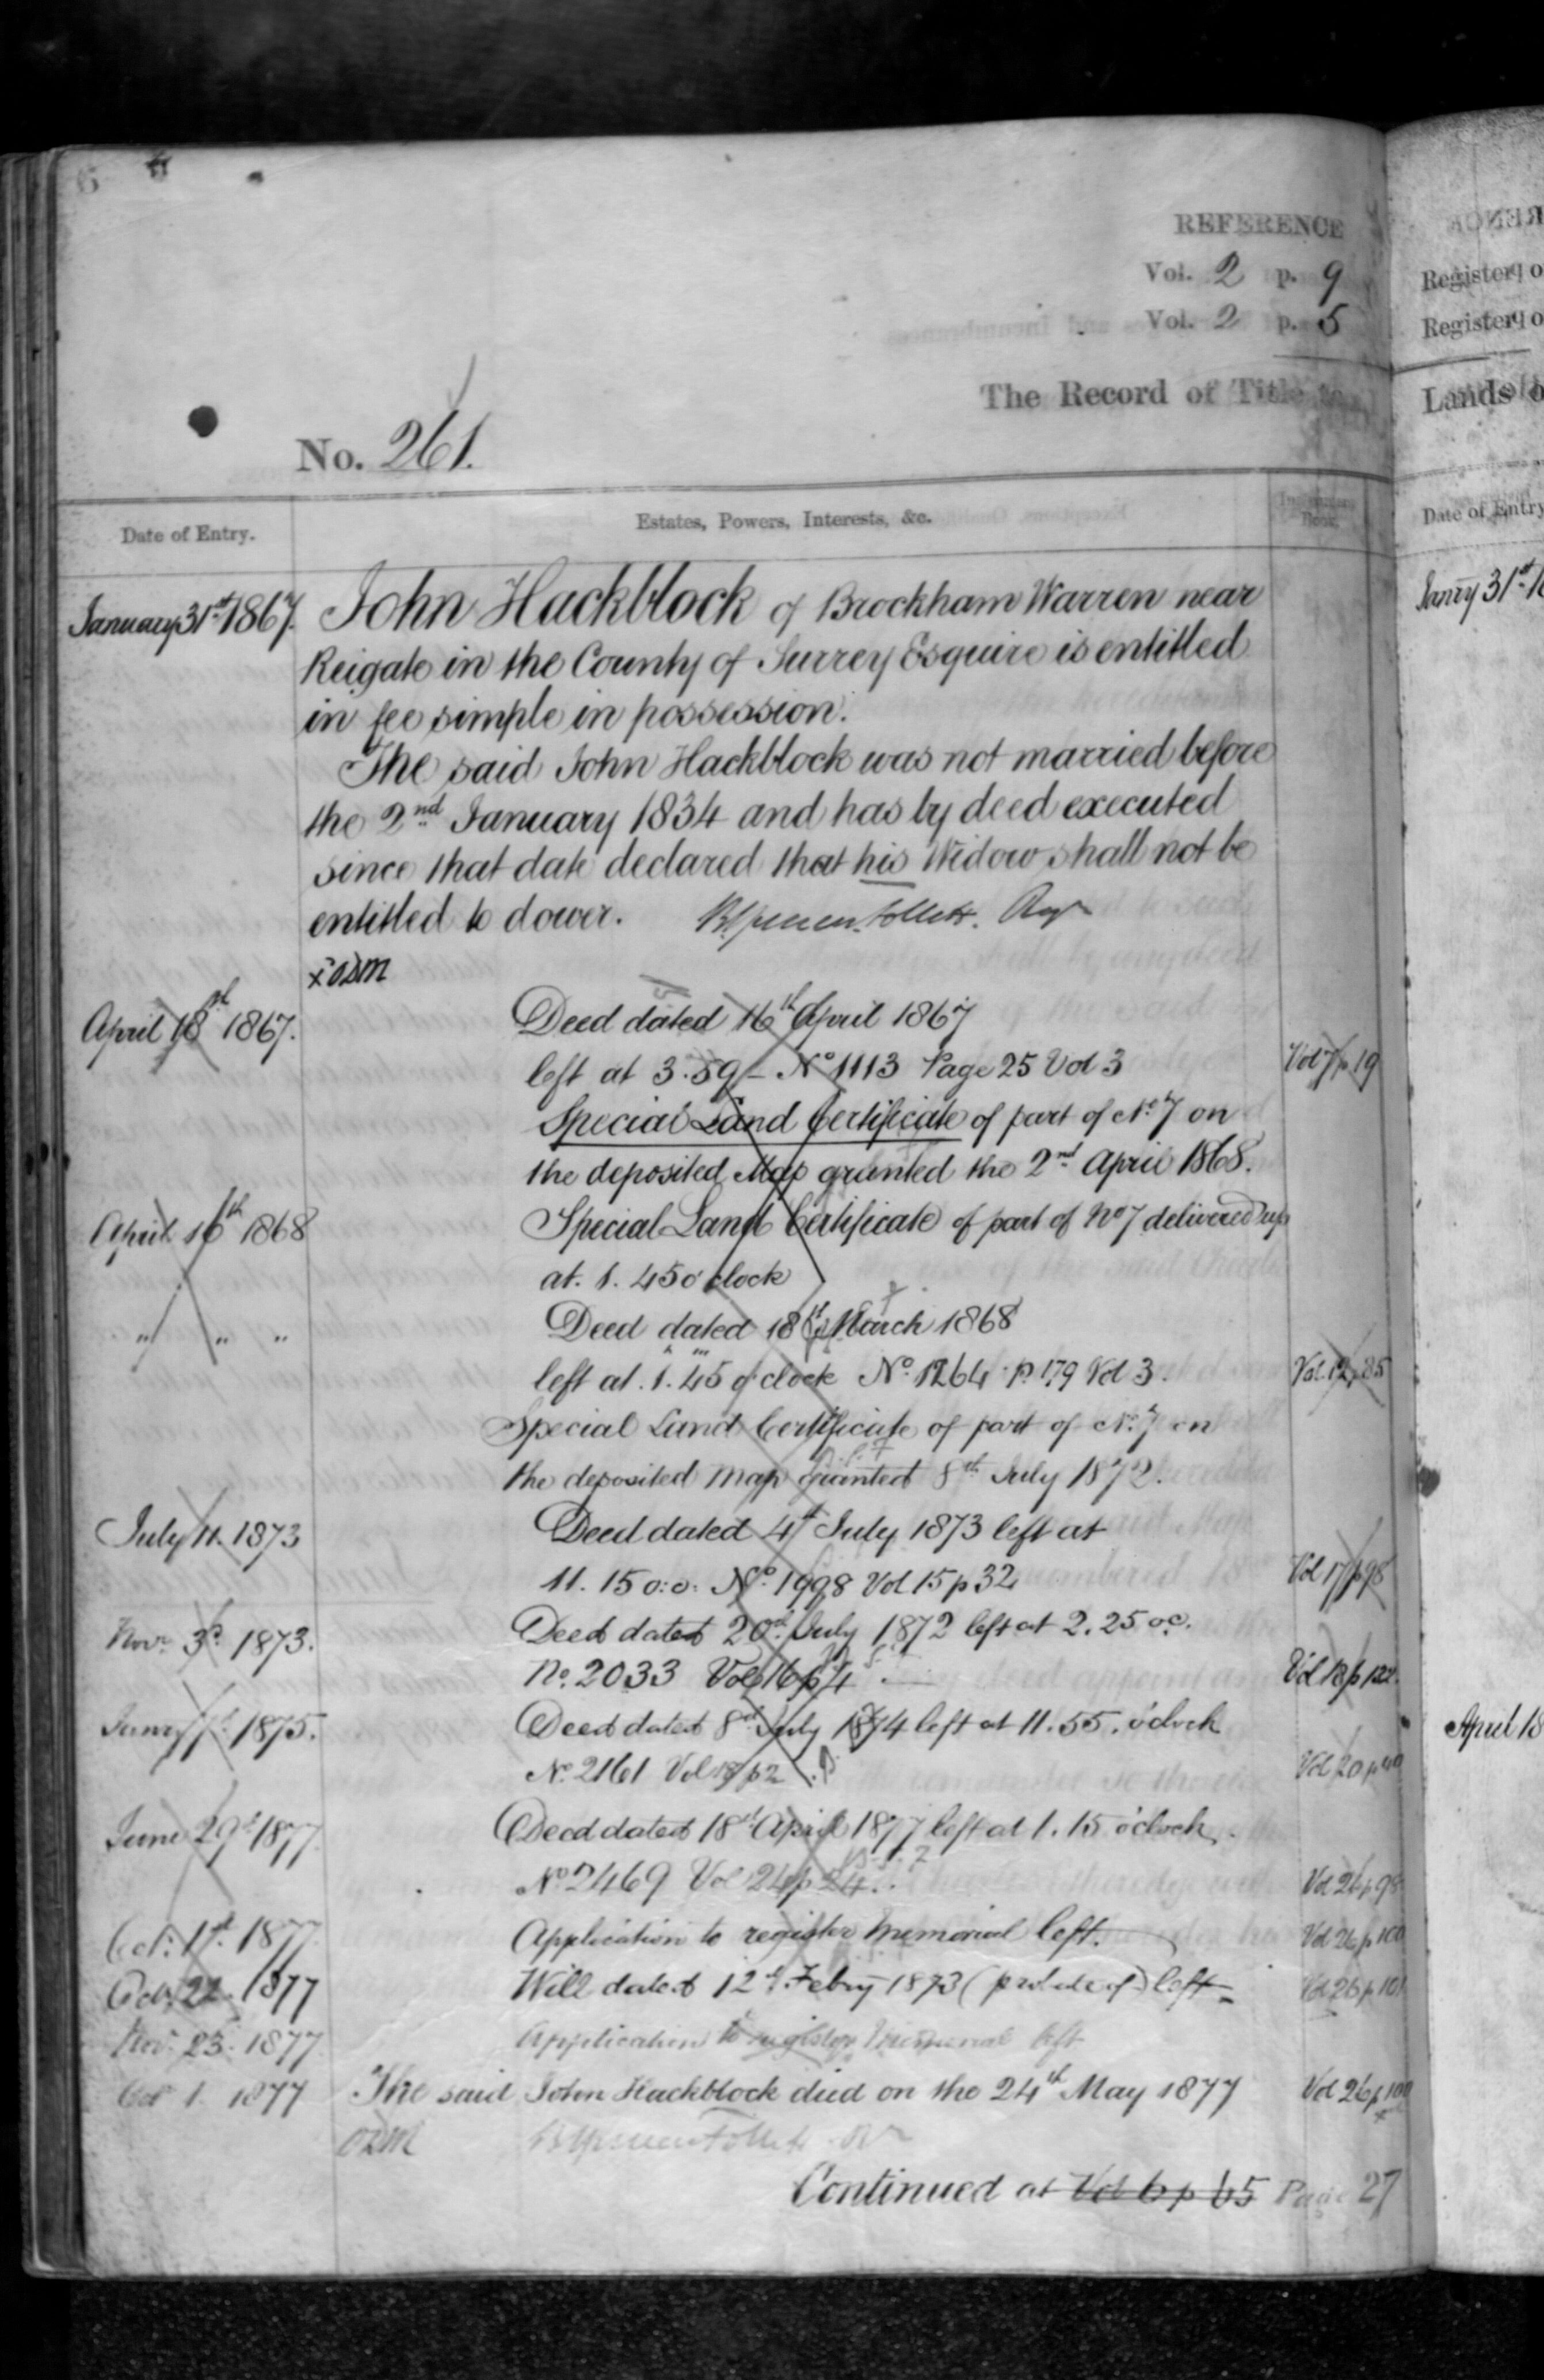 6
REFERENCE
Vol. 2 p. 9
Vol. 2 p. 5
The Record of Title to
No. 261.
Date of Entry.
Estates, Powers, Interests, &c.
January 31st 1867. John Hackblock of Brockham Warren near
Reigate in the County of Surrey Esquire is entitled
in fee simple in possession.
The said John Hackblock was not married before
the 2nd January 1834 and has by deed executed
since that date declared that his Widow shall not be
entitled to dower.
April 18th 1867. Deed dated 16th April 1867
left at 3.59 - No 1113 Page 25 Vol 3 Vol 7 p 19
Special Land Certificate of part of No. 7 on
the deposited Map granted the 2nd April 1868.
April 16th 1868 Special Land Certificate of part of No 7 delivered up
at. 1. 45 o'clock
" " " Deed dated 18th March 1868
left at. 1. 45 o'clock No. 1264 p. 179 Vol 3. Vol. 12 p 85
Special Land Certificate of part of No. 7 on
the deposited map granted 8th July 1872.
July 11. 1873 Deed dated 4th July 1873 left at
11. 15 o:c: No. 1998 Vol 15 p 32 Vol 17 p 98
Novr. 3d. 1873. Deed dated 20th July 1872 left at 2. 25 oc.
No. 2033 Vol 16 p 4 Vol 18 p 122
1875. Deed dated 8th July 1874 left at 11. 55. o'clock
No. 2161 Vol p 2 Vol 20 p
June 29th 1877 Deed dated 18th April 1877 left at 1. 15 o'clock.
No 2469 Vol 24 p 24. Vol 26 p 98
Oct: 1st. 1877 Application to register memorial left. Vol 26 p 100
Oct. 22. 1877 Will dated 12th. Febry 1873 (probate of) left Vol 26 p 101
Nov. 23. 1877 Application to register Memorial left
Oct 1 1877 The said John Hackblock died on the 24th May 1877 Vol 26 p 100
Continued at Vol 6 p 65 Page 27
Register of
Register of
Lands
Date of Entry
Janry 31st
April 18